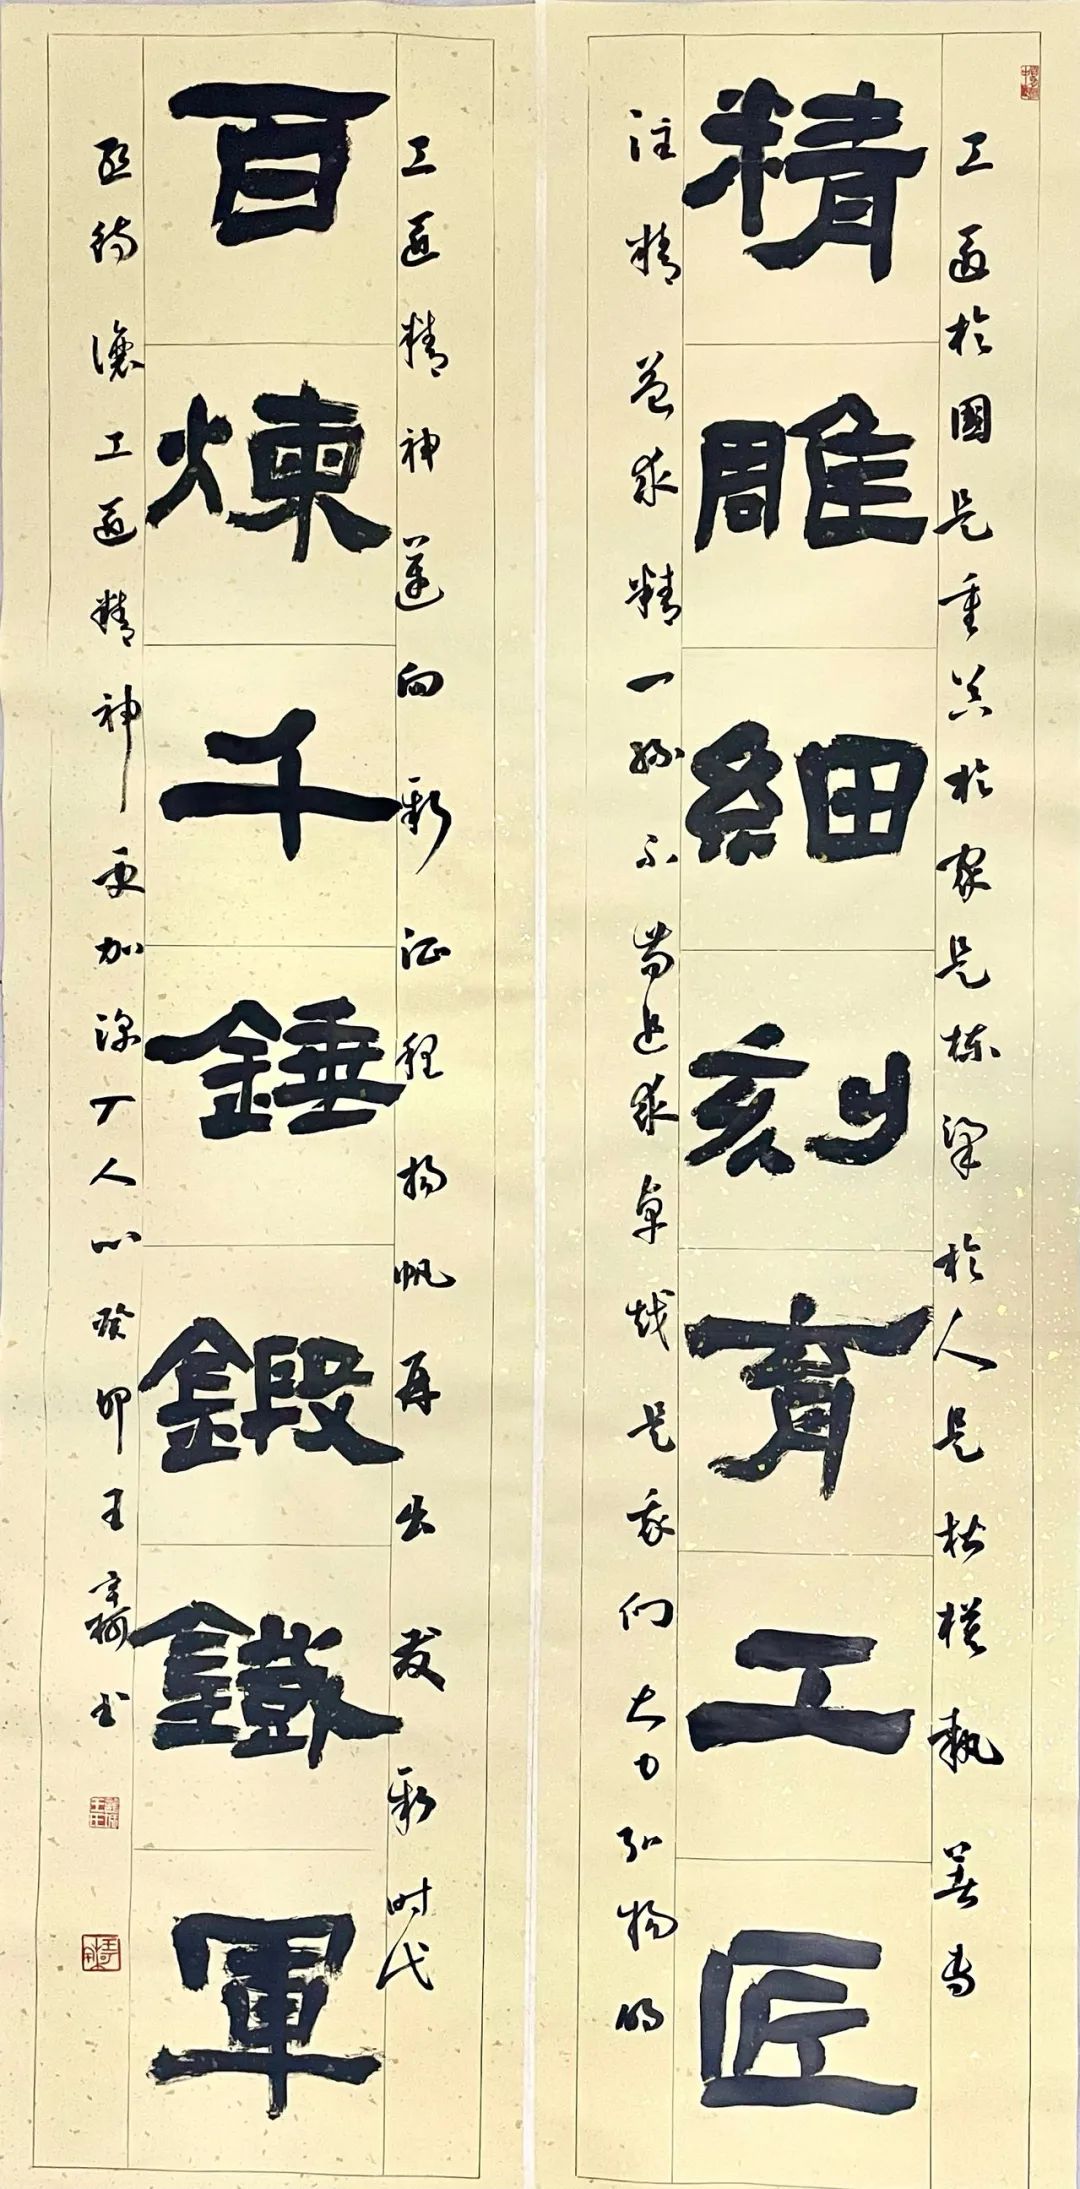 精雕細刻育工匠
工匠於國是重器於家是栋梁於人是楷模執著专
注精益求精一丝不苟追求卓越是我们大力弘扬的
百煉千錘鍛鐵軍
工匠精神邁向新征程扬帆再出发新时代
亟待讓工匠精神更加深人心癸卯王书